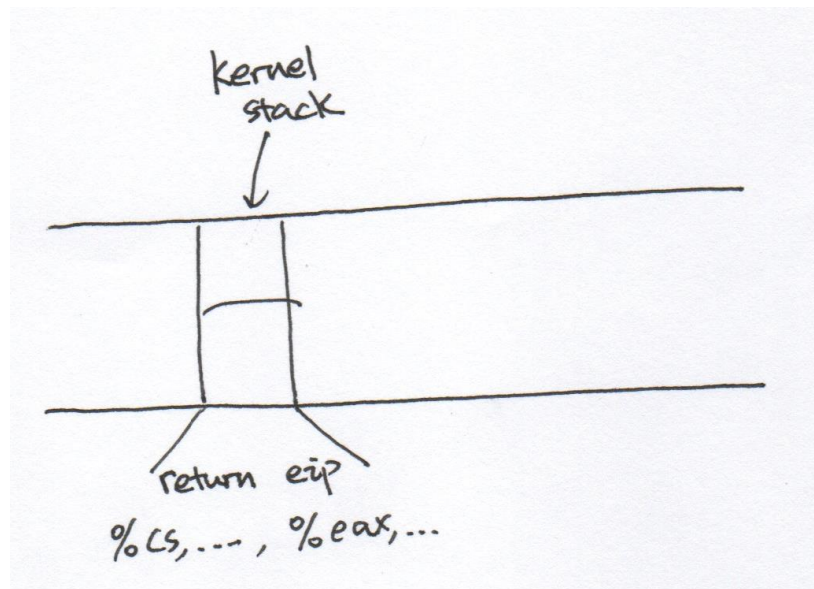 kernel
stack
return eip
%cs,...., %eax,...